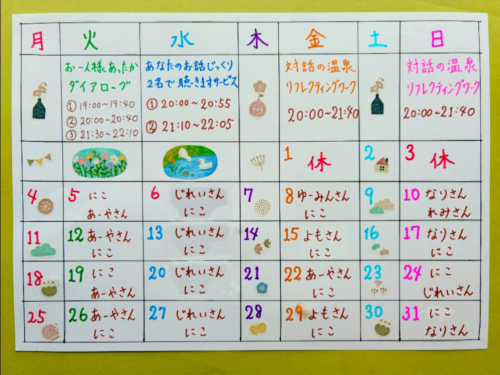 月 火 水 木 金 土 日
お一人様あったか
ダイアローグ
① 19:00〜19:40
② 20:00〜20:40
③ 21:30〜22:10
あなたのお話じっくり
2名で聴きますサービス
① 20:00〜20:55
② 21:10〜22:05
対話の温泉
リフレクティングワーク
20:00〜21:40
対話の温泉
リフレクティングワーク
20:00〜21:40
1 休 2 3 休
4 5 にこ 6 じれいさん 7 8 ゆーみんさん 9 10 なりさん
あーやさん にこ にこ れみさん
11 12 あーやさん 13 じれいさん 14 15 よもさん 16 17 なりさん
にこ にこ にこ にこ
18 19 にこ 20 じれいさん 21 22 あーやさん 23 24 にこ
あーやさん にこ にこ じれいさん
25 26 あーやさん 27 じれいさん 28 29 よもさん 30 31 にこ
にこ にこ にこ なりさん